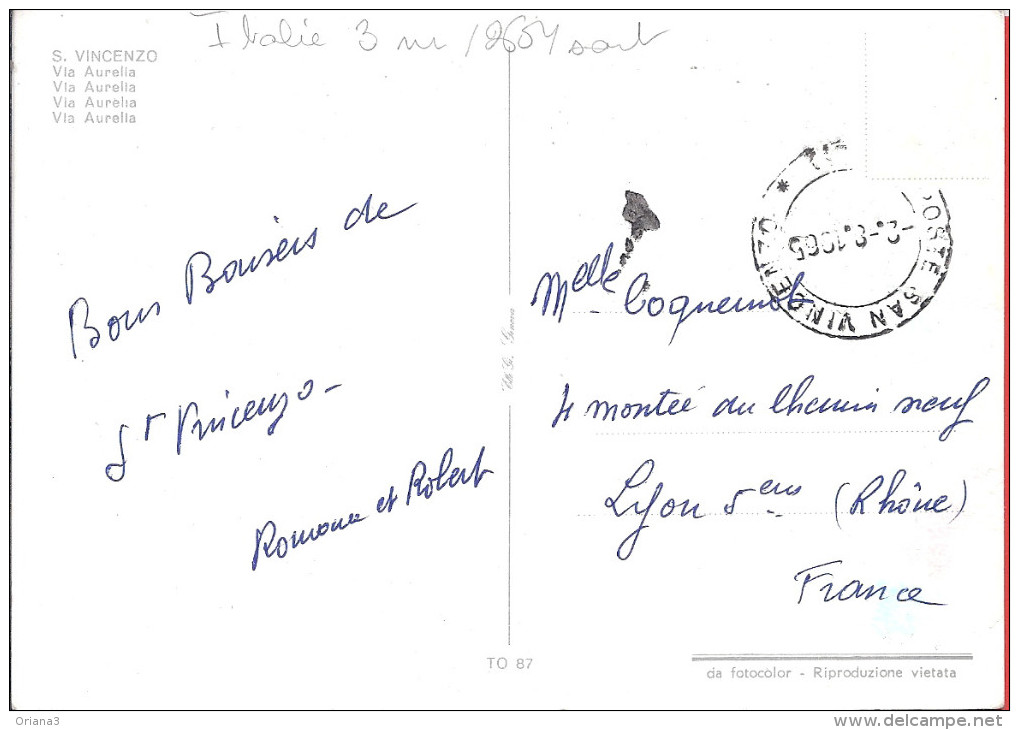 Italie 3 m /2654 sart
S. VINCENZO
Via Aurelia
Via Aurelia
Via Aurelia
Via Aurelia
Bons Baisers de
St Vincenzo -
Romana et Robert
POSTE SAN VINCENZO *
-2.-8.1965
Melle Coquemot
4 montée du Chemin neuf
Lyon 5ème (Rhône)
France
TO 87
da fotocolor - Riproduzione vietata
Oriana3
www.delcampe.net